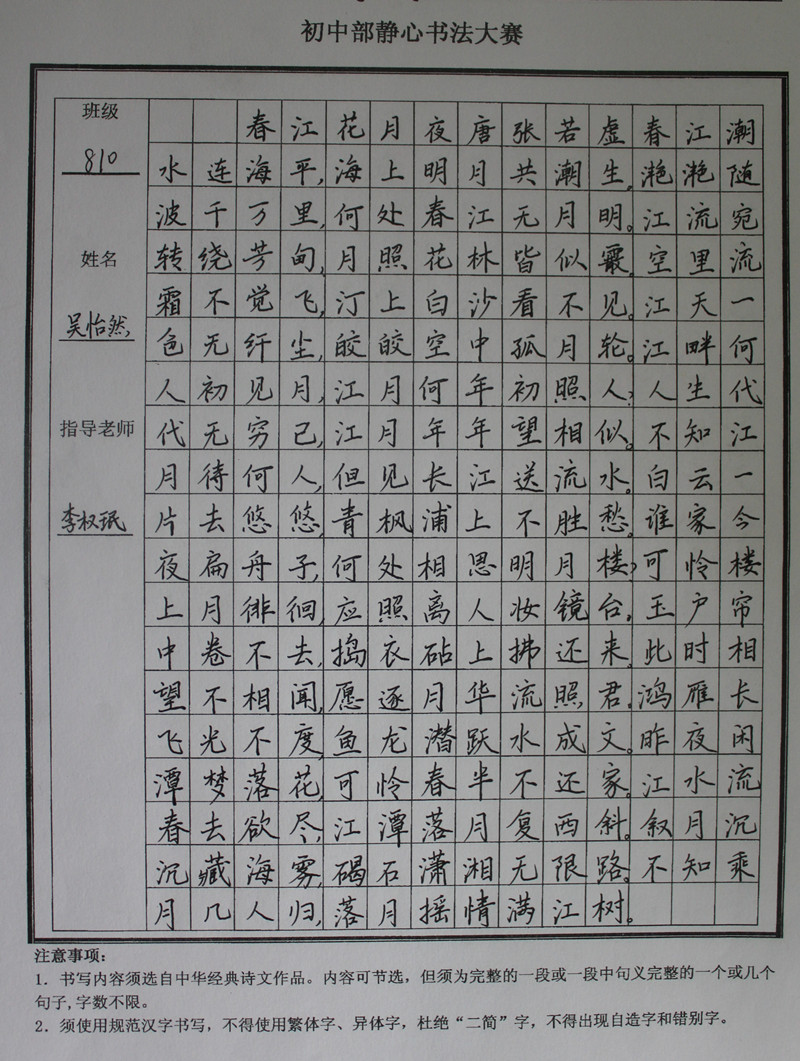 初中部静心书法大赛
班级
810
姓名
吴怡然
指导老师
李权珉
春江花月夜唐张若虚春江潮
水连海平,海上明月共潮生。滟滟随
波千万里,何处春江无月明。江流宛
转绕芳甸,月照花林皆似霰。空里流
霜不觉飞,汀上白沙看不见。江天一
色无纤尘,皎皎空中孤月轮。江畔何
人初见月,江月何年初照人?人生代
代无穷已,江月年年望相似。不知江
月待何人,但见长江送流水。白云一
片去悠悠,青枫浦上不胜愁。谁家今
夜扁舟子,何处相思明月楼?可怜楼
上月徘徊,应照离人妆镜台。玉户帘
中卷不去,捣衣砧上拂还来。此时相
望不相闻,愿逐月华流照君。鸿雁长
飞光不度,鱼龙潜跃水成文。昨夜闲
潭梦落花,可怜春半不还家。江水流
春去欲尽,江潭落月复西斜。叙月沉
沉藏海雾,碣石潇湘无限路。不知乘
月几人归,落月摇情满江树。
注意事项:
1. 书写内容须选自中华经典诗文作品。内容可节选,但须为完整的一段或一段中句义完整的一个或几个
句子,字数不限。
2. 须使用规范汉字书写,不得使用繁体字、异体字,杜绝“二简”字,不得出现自造字和错别字。